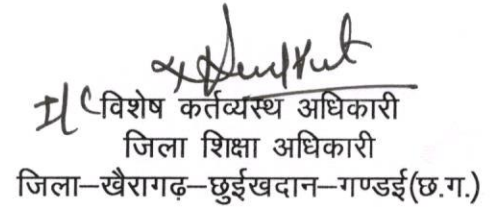 I/c विशेष कर्तव्यस्थ अधिकारी
जिला शिक्षा अधिकारी
जिला–खैरागढ़–छुईखदान–गण्डई(छ.ग.)